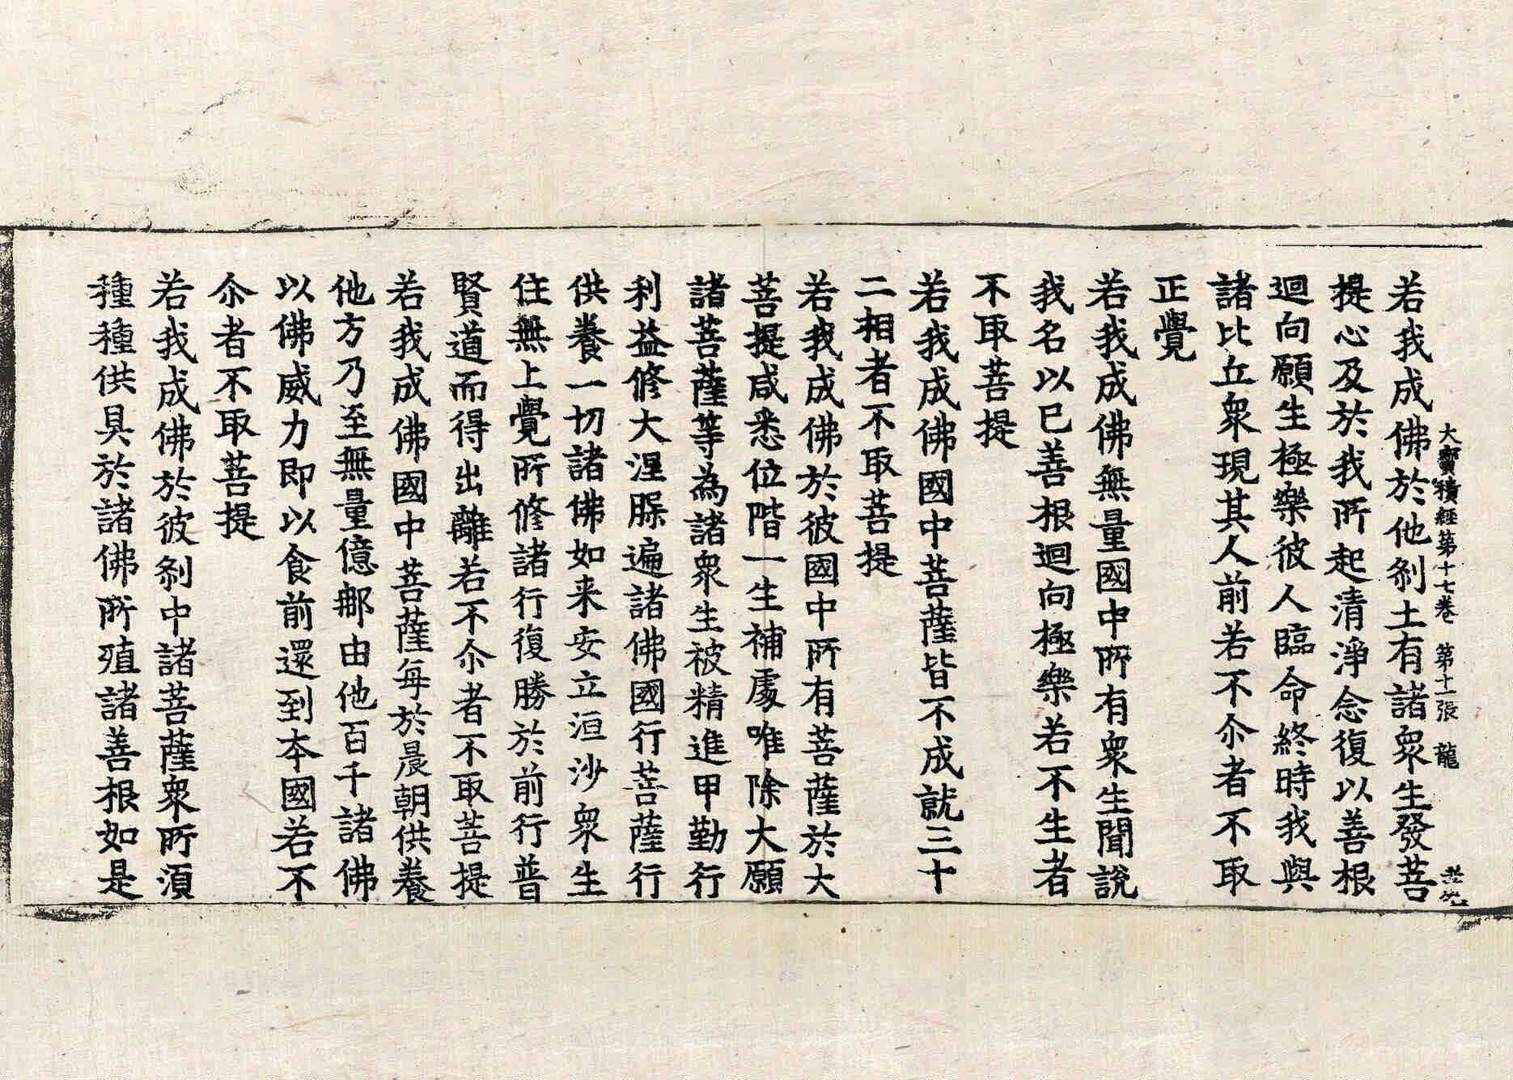 大寶積經第十七卷 第十一張 龍
若我成佛於他刹土有諸衆生發菩
提心及於我所起清淨念復以善根
迴向願生極樂彼人臨命終時我與
諸比丘衆現其人前若不尒者不取
正覺
若我成佛無量國中所有衆生聞說
我名以已善根迴向極樂若不生者
不取菩提
若我成佛國中菩薩皆不成就三十
二相者不取菩提
若我成佛於彼國中所有菩薩於大
菩提咸悉位階一生補處唯除大願
諸菩薩等為諸衆生被精進甲勤行
利益修大涅槃遍諸佛國行菩薩行
供養一切諸佛如来安立洹沙衆生
住無上覺所修諸行復勝於前行普
賢道而得出離若不尒者不取菩提
若我成佛國中菩薩每於晨朝供養
他方乃至無量億那由他百千諸佛
以佛威力即以食前還到本國若不
尒者不取菩提
若我成佛於彼刹中諸菩薩衆所須
種種供具於諸佛所殖諸善根如是